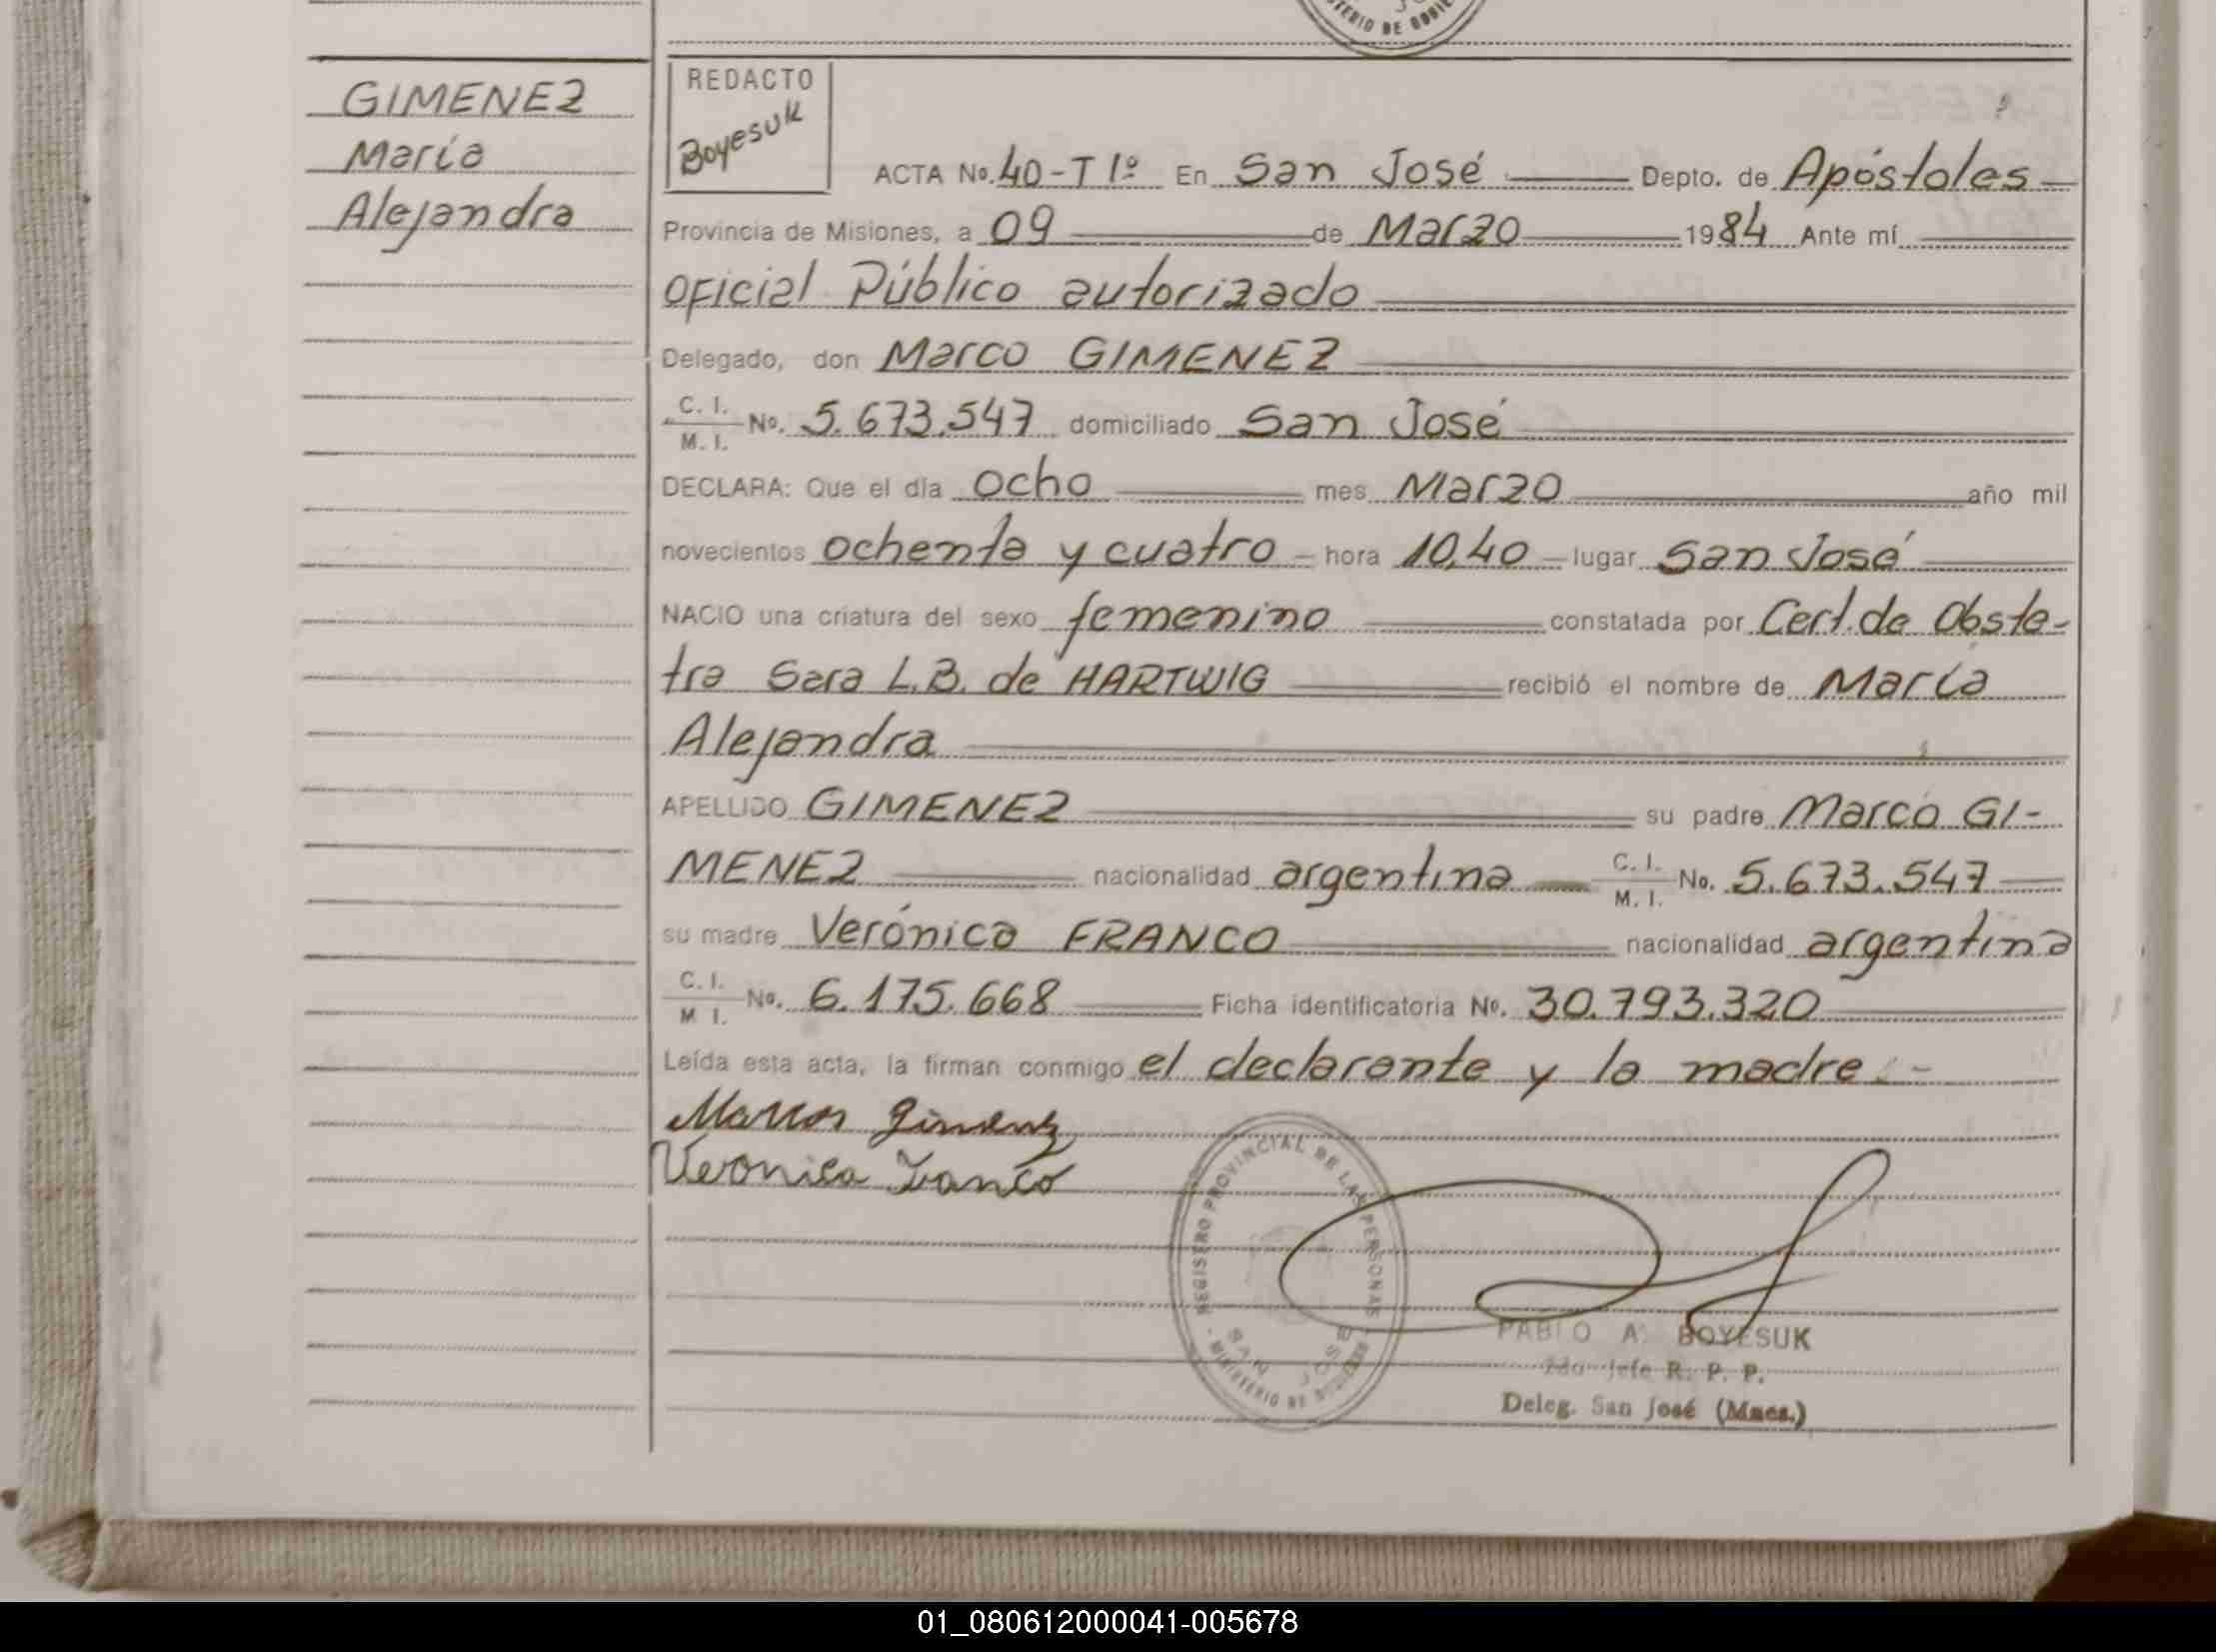 TERIO DE GOBIE
GIMENEZ
María
Alejandra
REDACTO
Boyesuk
ACTA No. 40-T 1º En San José Depto. de Apóstoles
Provincia de Misiones, a 09 de Marzo 1984 Ante mí
oficial Público autorizado
Delegado, don Marco GIMENEZ
C. I.
M. I. No. 5.673.547 domiciliado San José
DECLARA: Que el día ocho mes Marzo año mil
novecientos ochenta y cuatro hora 10,40 lugar San José
NACIO una criatura del sexo femenino constatada por Cert. de Obste-
tra Sara L.B. de HARTWIG recibió el nombre de María
Alejandra
APELLIDO GIMENEZ su padre Marco GI-
MENEZ nacionalidad argentina C. I. M. I. No. 5.673.547
su madre Verónica FRANCO nacionalidad argentina
C. I.
M I. No. 6.175.668 Ficha identificatoria No. 30.793.320
Leída esta acta, la firman conmigo el declarante y la madre.-
Marcos Gimenez
Veronica Franco
REGISTRO PROVINCIAL DE LAS PERSONAS
SAN JOSE
MINISTERIO DE GOBIERNO
PABLO A. BOYESUK
2do Jefe R. P. P.
Deleg. San José (Mnes.)
01_080612000041-005678